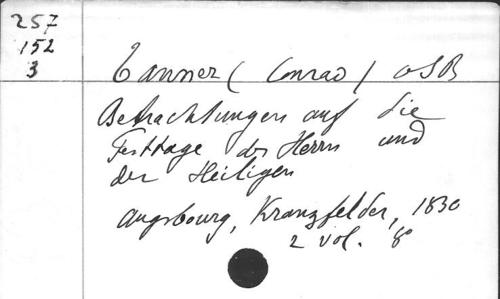 257
152
3
Tanner (Conrad) OSB
Betrachtungen auf die
Festtage des Herrn und
der Heiligen
Augsbourg, Kranzfelder, 1830
2 vol. 8°